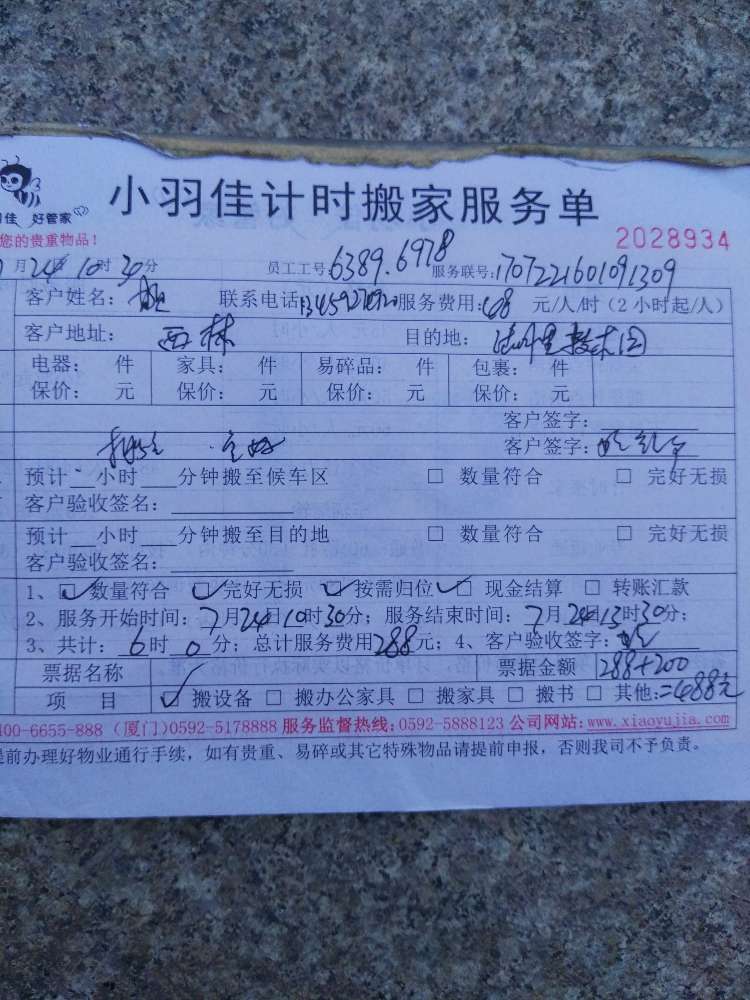 小羽佳计时搬家服务单
佳 好管家
您的贵重物品！
2028934
月24日10时30分 员工工号：6389.6978 服务联号：1707221601091309
客户姓名： 联系电话 服务费用：48 元/人/时（2小时起/人）
客户地址：西林 目的地：
电器： 件 家具： 件 易碎品： 件 包裹： 件
保价： 元 保价： 元 保价： 元 保价： 元
客户签字：
客户签字：
预计 小时 分钟搬至候车区 □ 数量符合 □ 完好无损
客户验收签名：
预计 小时 分钟搬至目的地 □ 数量符合 □ 完好无损
客户验收签名：
1、☑数量符合 ☑完好无损 ☑按需归位 ☑ 现金结算 □ 转账汇款
2、服务开始时间：7月24日10时30分；服务结束时间：7月24日13时30分；
3、共计：6时0分；总计服务费用288元；4、客户验收签字：
票据名称 票据金额 288+200
项 目 ☑ 搬设备 □ 搬办公家具 □ 搬家具 □ 搬书 □ 其他：=488元
00-6655-888（厦门）0592-5178888 服务监督热线：0592-5888123 公司网站：www.xiaoyujia.com
提前办理好物业通行手续，如有贵重、易碎或其它特殊物品请提前申报，否则我司不予负责。